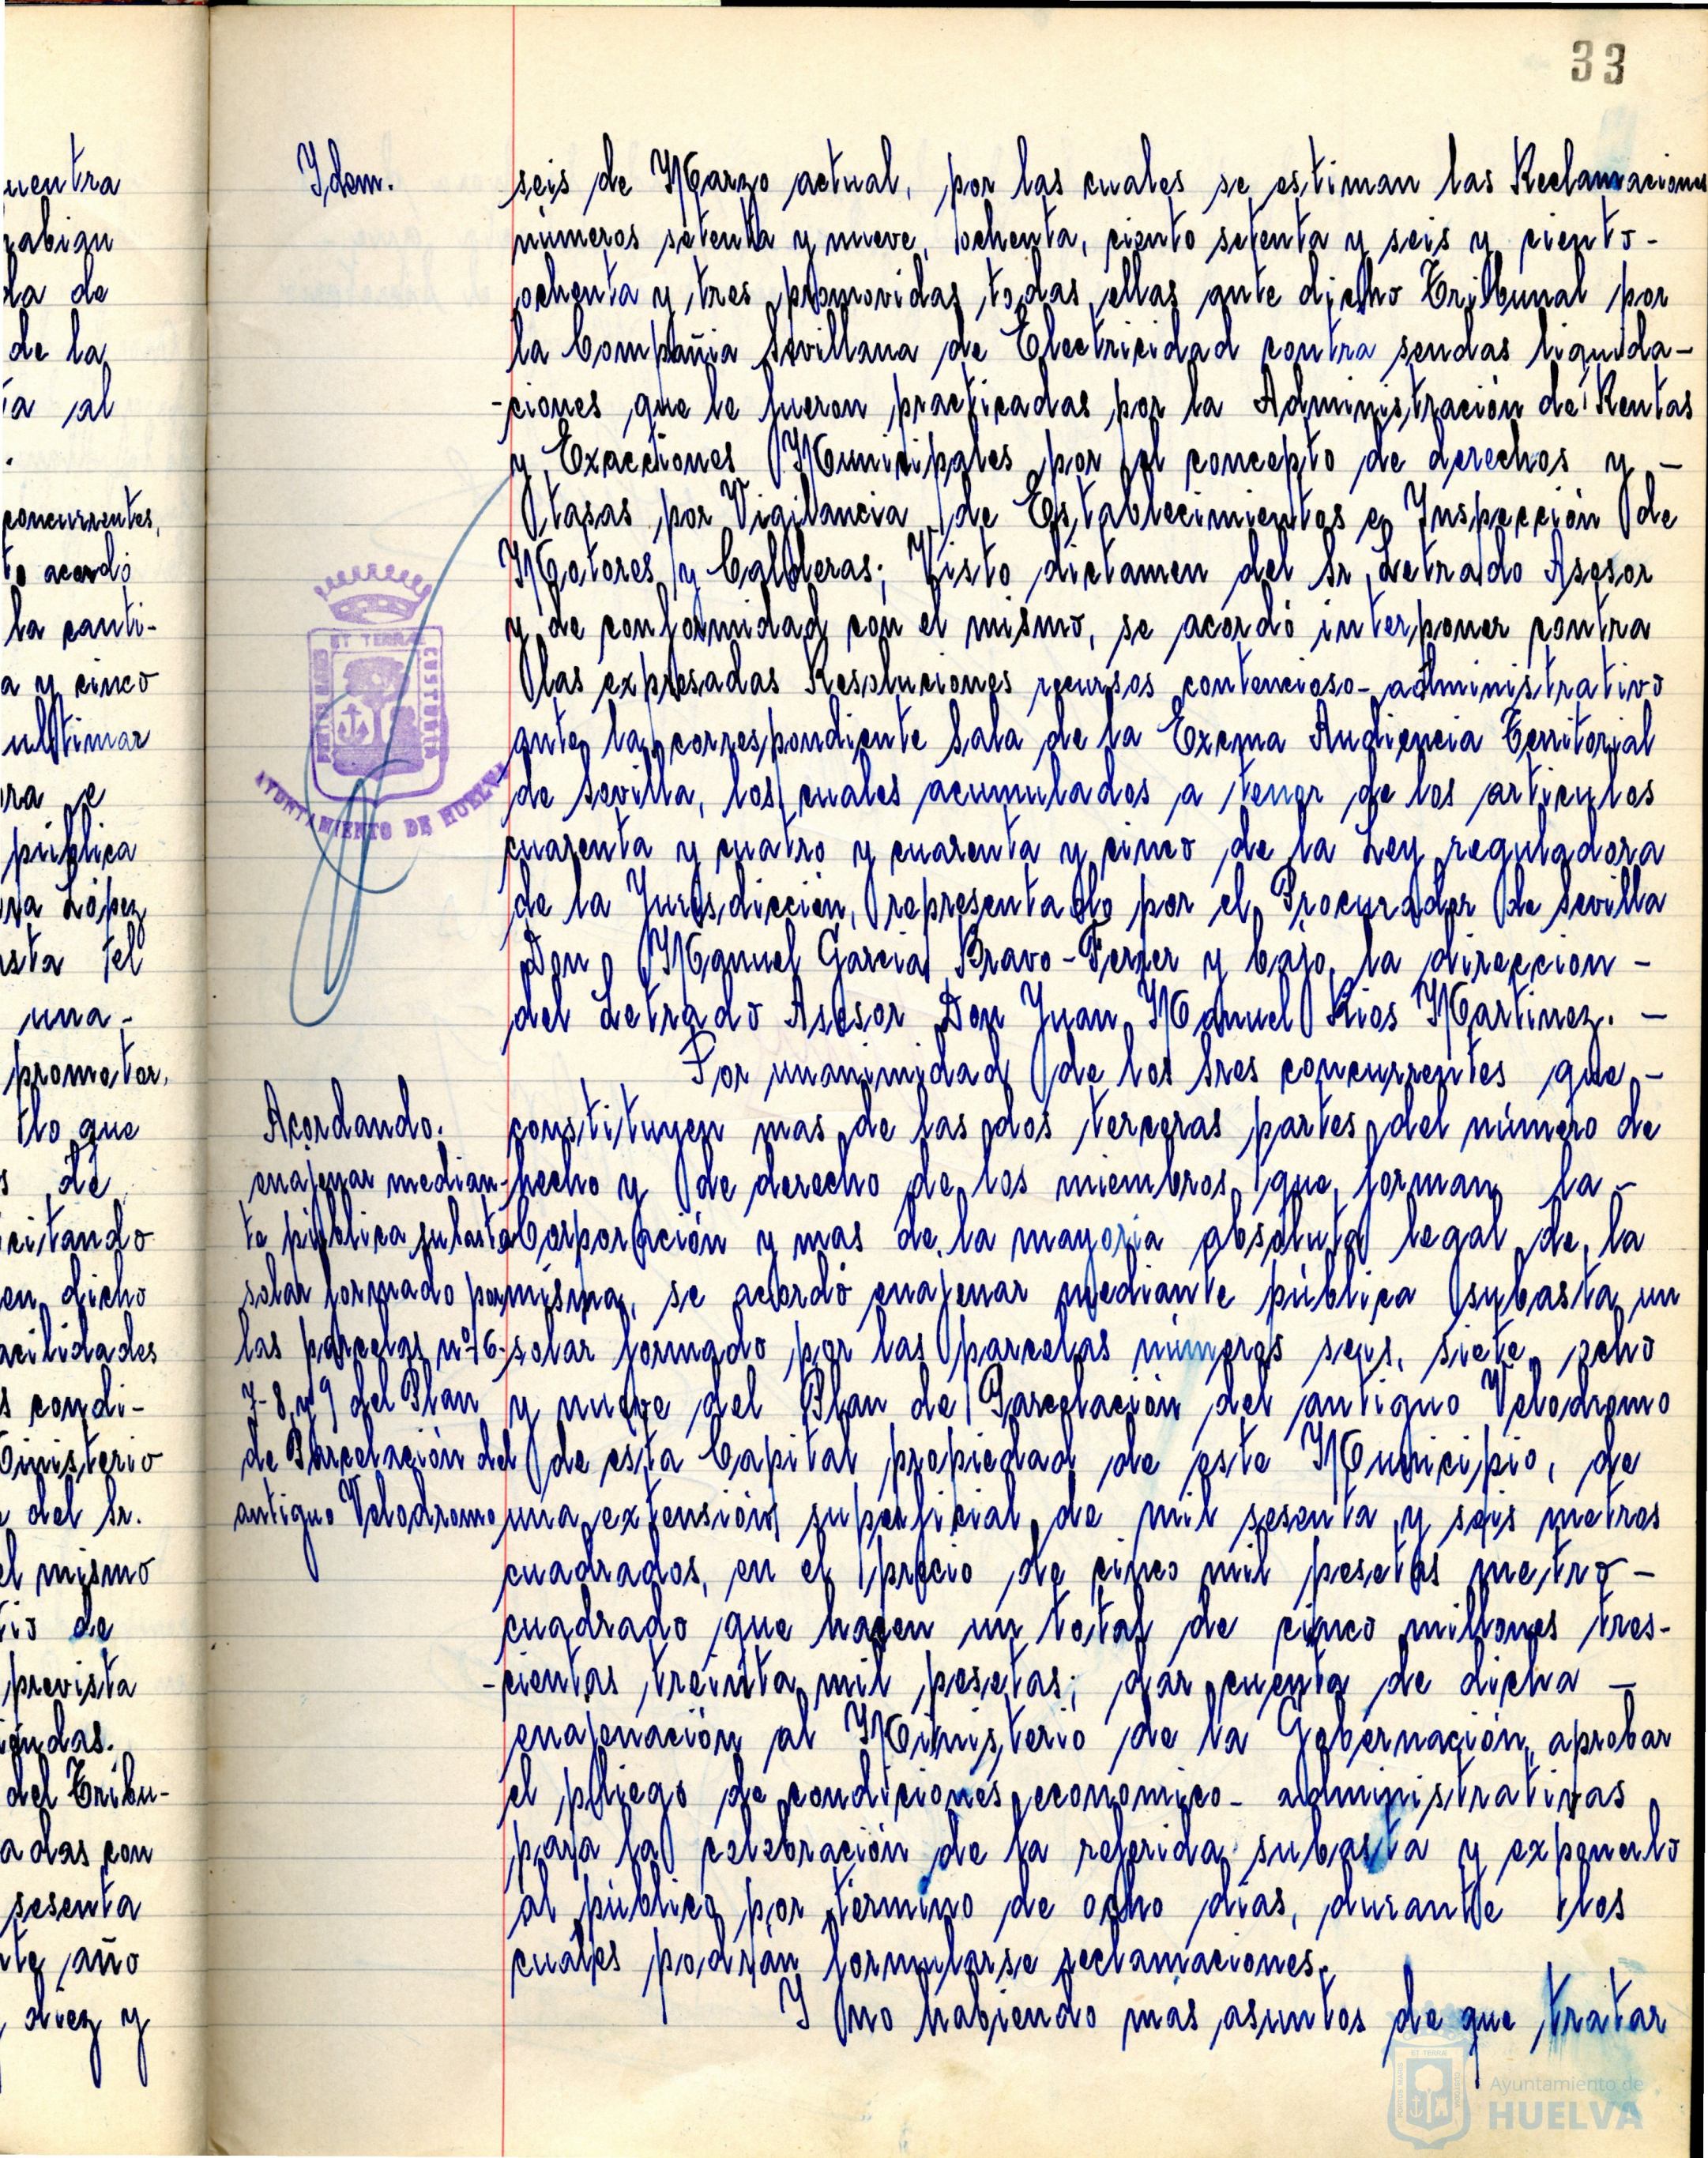 33
Idem.
seis de Marzo actual, por las cuales se estiman las Reclamaciones
números setenta y nueve, ochenta, ciento setenta y seis y ciento-
ochenta y tres promovidas todas ellas ante dicho Tribunal por
la Compañia Sevillana de Electricidad contra sendas liquida-
-ciones que le fueron practicadas por la Administración de Rentas
y Exacciones Municipales por el concepto de derechos y -
tasas por Vigilancia de Establecimientos e Inspección de
Motores y Calderas; Visto dictamen del Sr. Letrado Asesor
y de conformidad con el mismo, se acordó interponer contra
las expresadas Resoluciones recursos contencioso-administrativo
ante la correspondiente Sala de la Excma Audiencia Territorial
de Sevilla, los cuales acumulados a tenor de los articulos
cuarenta y cuatro y cuarenta y cinco de la Ley reguladora
de la Jurisdicción, representado por el Procurador de Sevilla
Don Manuel Garcia Bravo-Ferrer y bajo la direccion -
del Letrado Asesor Don Juan Manuel Rios Martinez. -
Por unanimidad de los Sres concurrentes que -
constituyen mas de las dos terceras partes del número de
hecho y de derecho de los miembros que forman la -
Corporación y mas de la mayoria absoluta legal de la
misma, se acordó enajenar mediante pública subasta un
solar formado por las parcelas números seis, siete, ocho
y nueve del Plan de Parcelación del antiguo Velodromo
de esta Capital propiedad de este Municipio, de
una extensión superficial de mil sesenta y seis metros
cuadrados, en el precio de cinco mil pesetas metro -
cuadrado que hacen un total de cinco millones tres-
-cientas treinta mil pesetas; dar cuenta de dicha -
enajenación al Ministerio de la Gobernación, aprobar
el pliego de condiciones economico-administrativas
para la celebración de la referida subasta y exponerlo
al público por término de ocho dias, durante los
cuales podrán formularse reclamaciones.
Y no habiendo mas asuntos de que tratar
Acordando.
enajenar median-
te pública subasta
solar formado por
las parcelas nº 6-
7-8 y 9 del Plan
de Parcelación del
antiguo Velodromo
PORTUS MARIS ET TERRAE CUSTODIA
AYUNTAMIENTO DE HUELVA
uentra
rabian
la de
de la
ia al
concurrentes,
to acordó
la canti-
a y cinco
ultimar
ra e
pública
ra López
sta el
una -
prometer,
lo que
s de
citando
en dicho
acilidades
s condi-
Ministerio
del Sr.
el mismo
tio de
prevista
iendas.
del Tribu-
adas con
sesenta
nte año
diez y
Ayuntamiento de
HUELVA